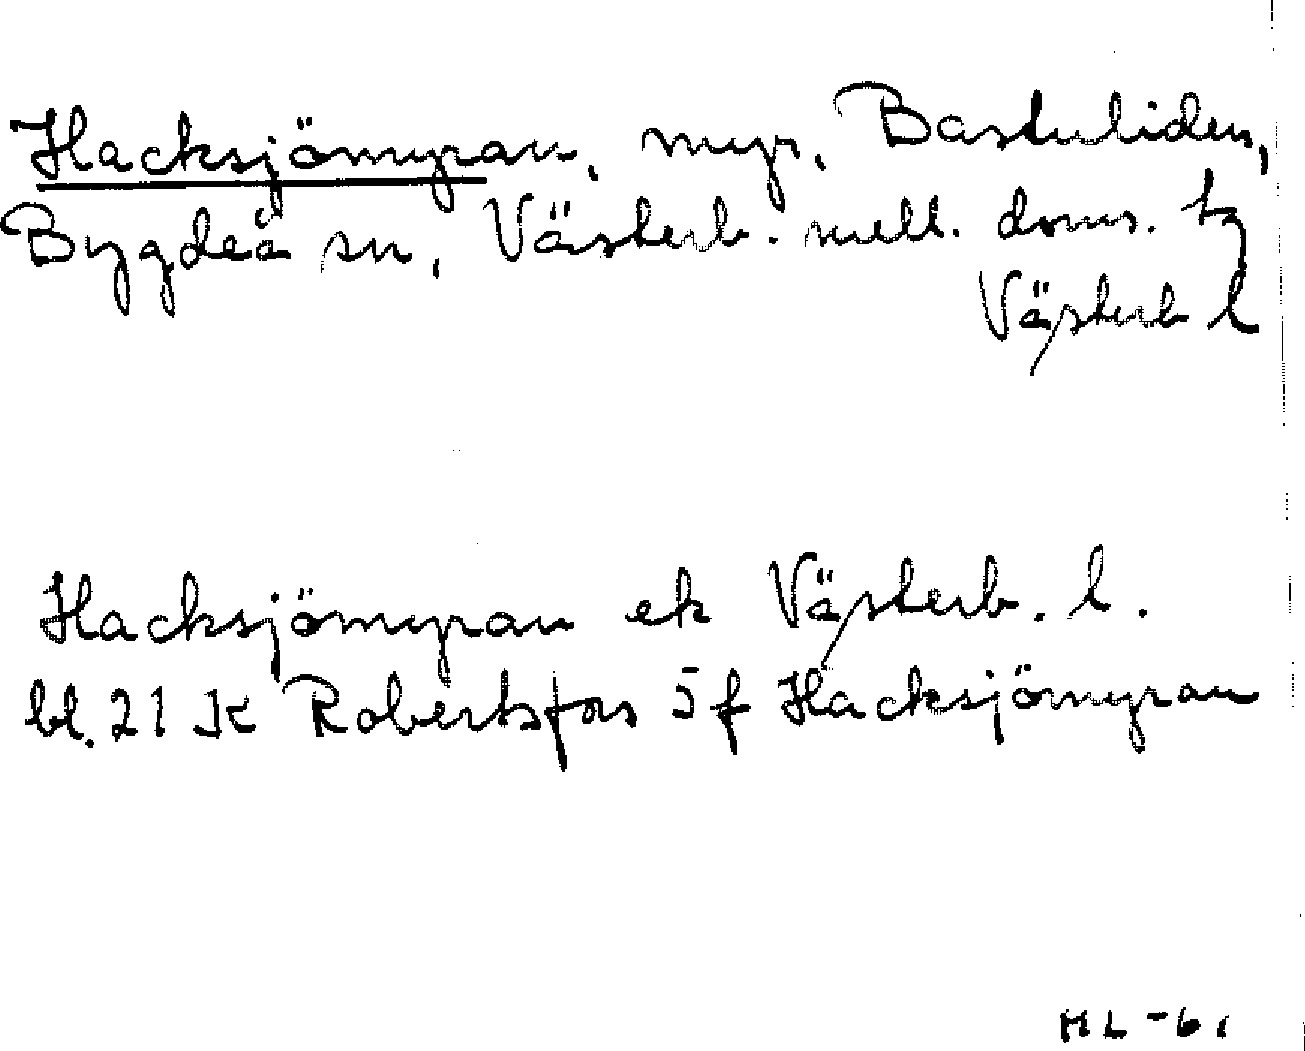 Hacksjömyran, myr, Bastuliden,
Bygdeå sn, Västerb. mell. doms. tg
Västerb l
Hacksjömyran ek Västerb. l.
bl. 21 K Robertsfors 5 f Hacksjömyran
HL -61